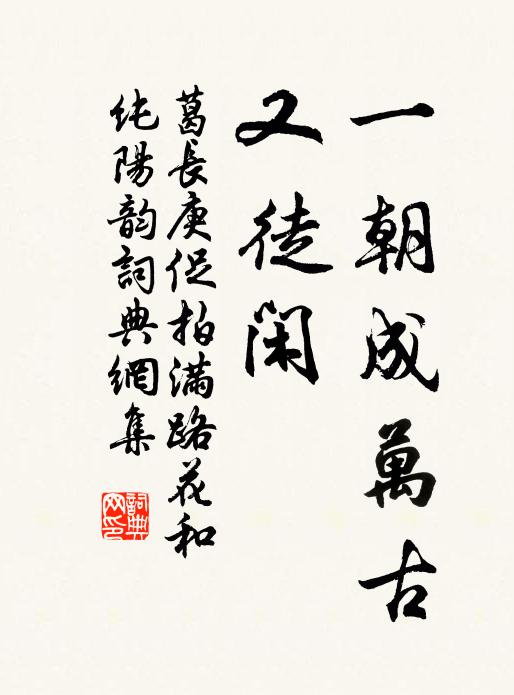 一朝成萬古
又徒閑
葛長庚促拍滿路花和
純陽韵詞典網集
詞典
网印